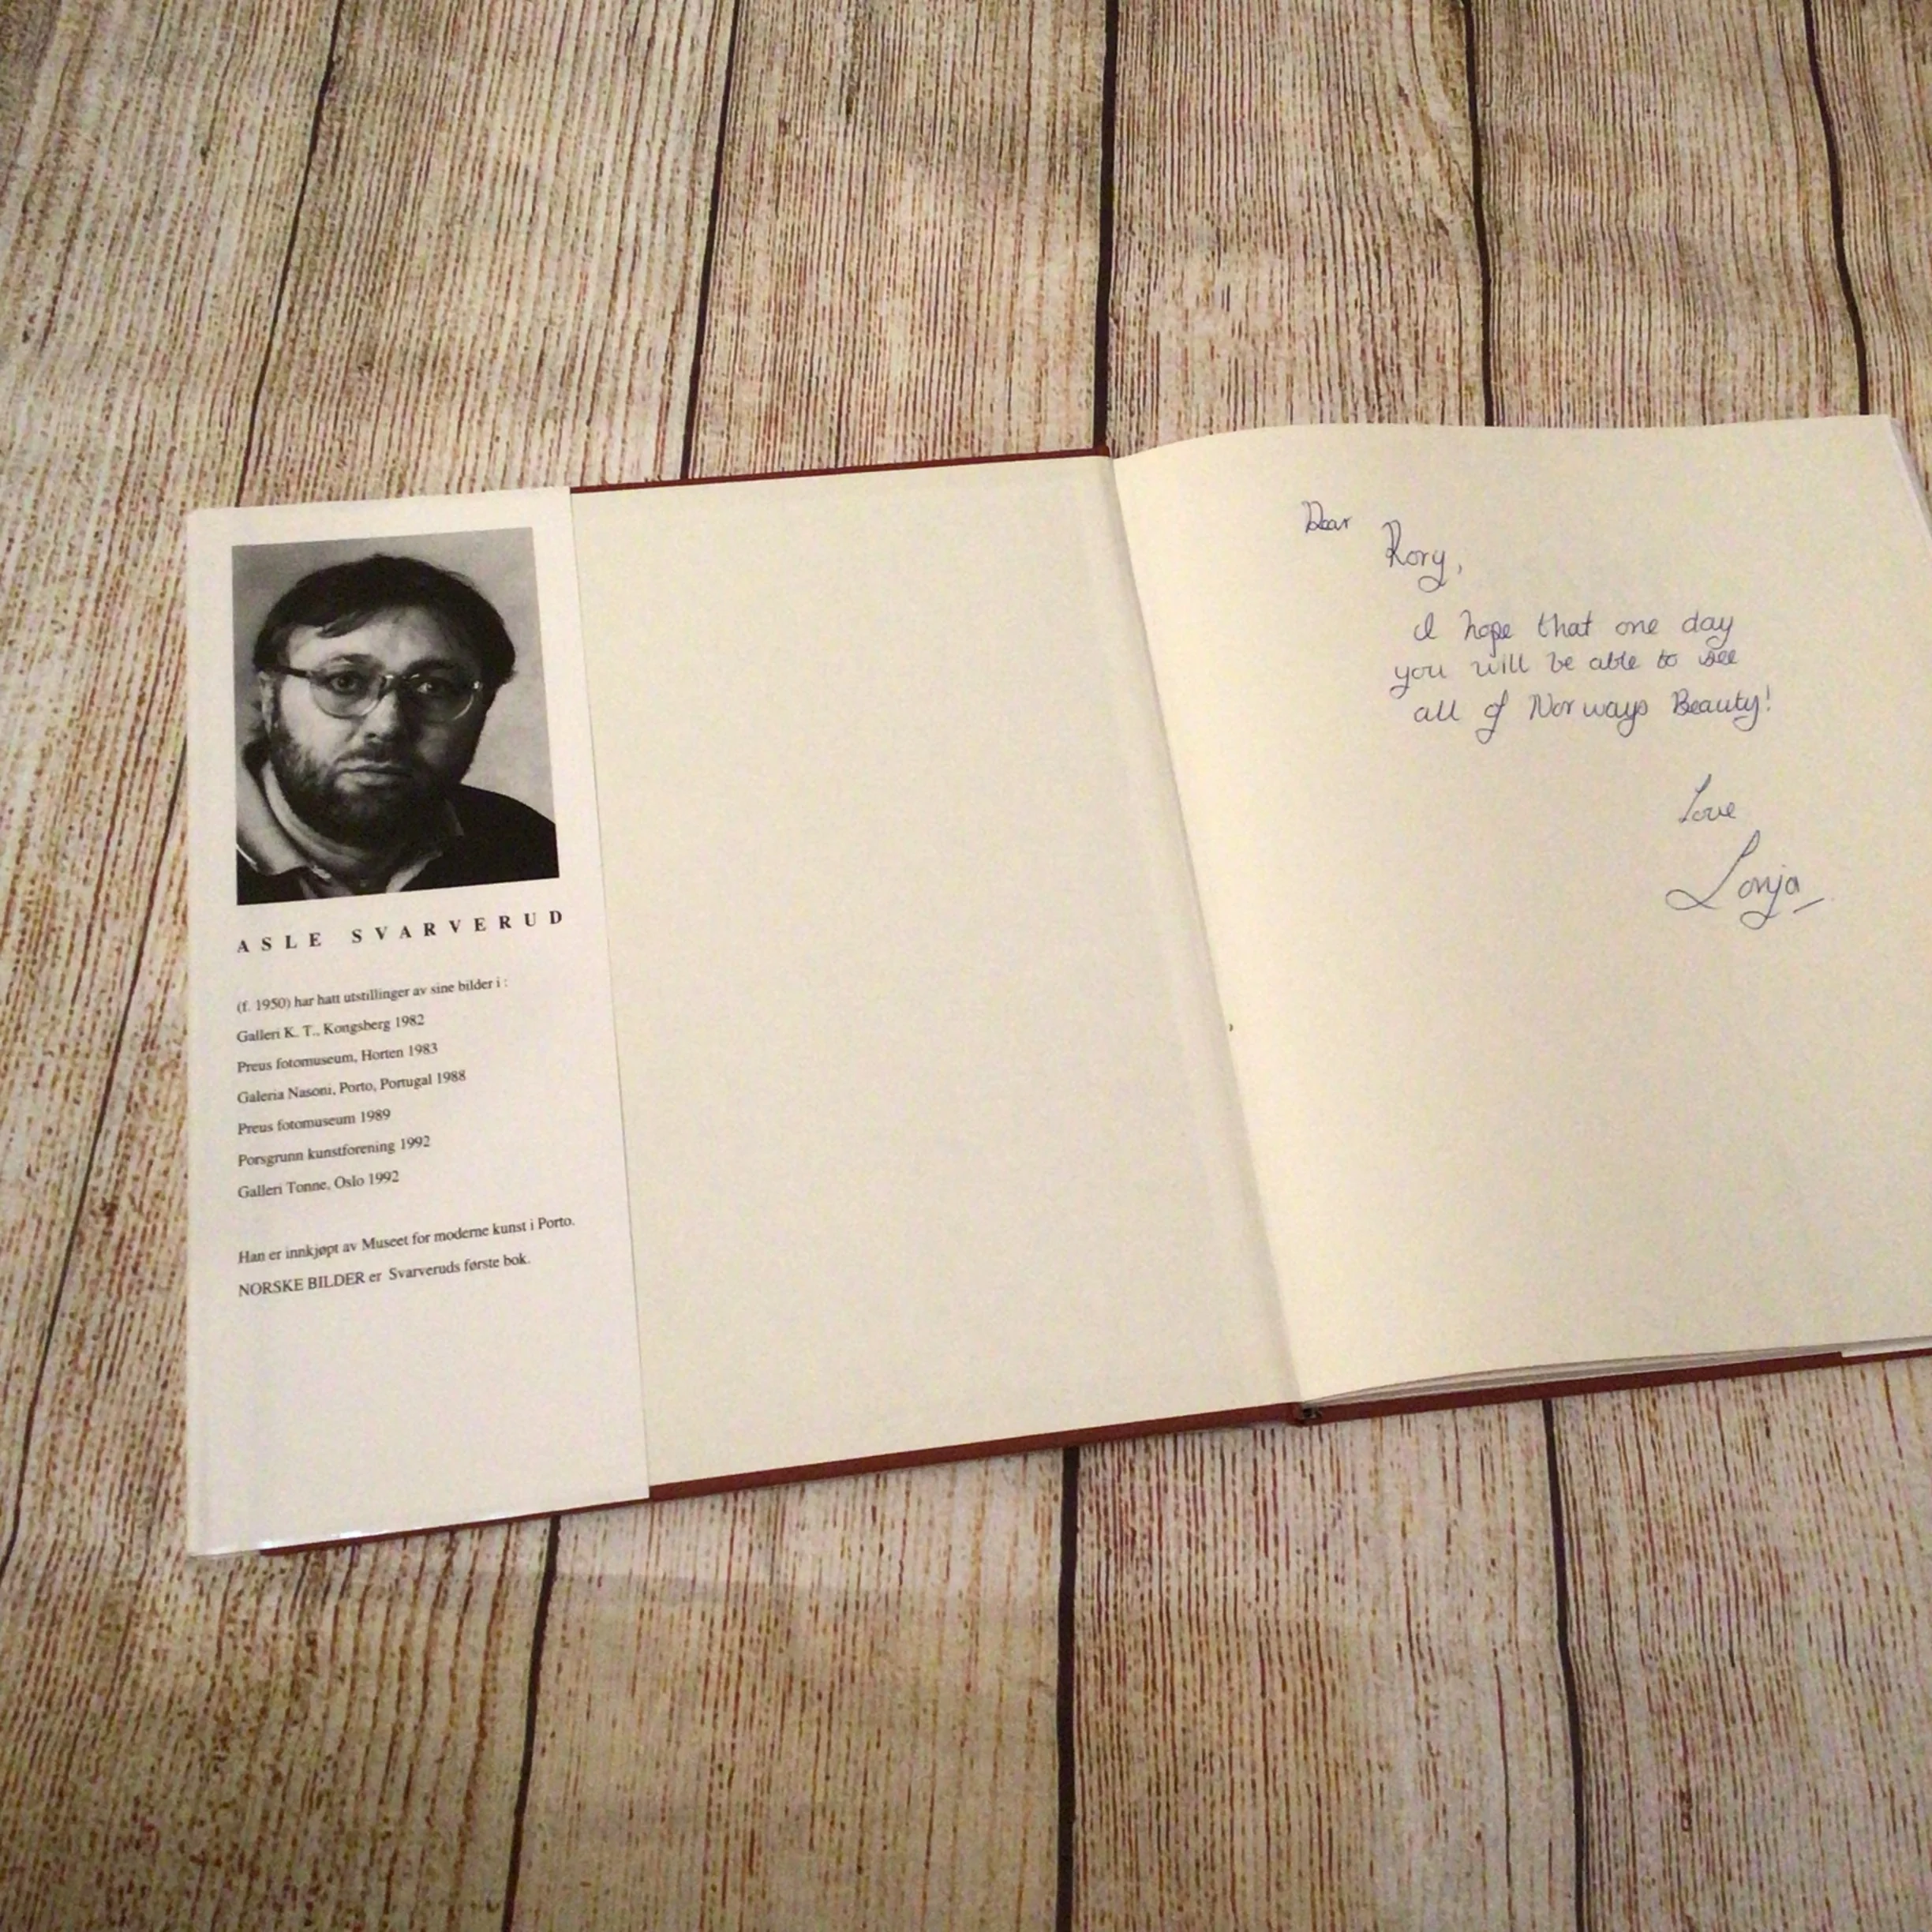 ASLE SVARVERUD
(f. 1950) har hatt utstillinger av sine bilder i :
Galleri K. T., Kongsberg 1982
Preus fotomuseum, Horten 1983
Galeria Nasoni, Porto, Portugal 1988
Preus fotomuseum 1989
Porsgrunn kunstforening 1992
Galleri Tonne, Oslo 1992
Han er innkjøpt av Museet for moderne kunst i Porto.
NORSKE BILDER er Svarveruds første bok.
Dear
Rory,
I hope that one day
you will be able to see
all of Norways Beauty!
Love
Sonja